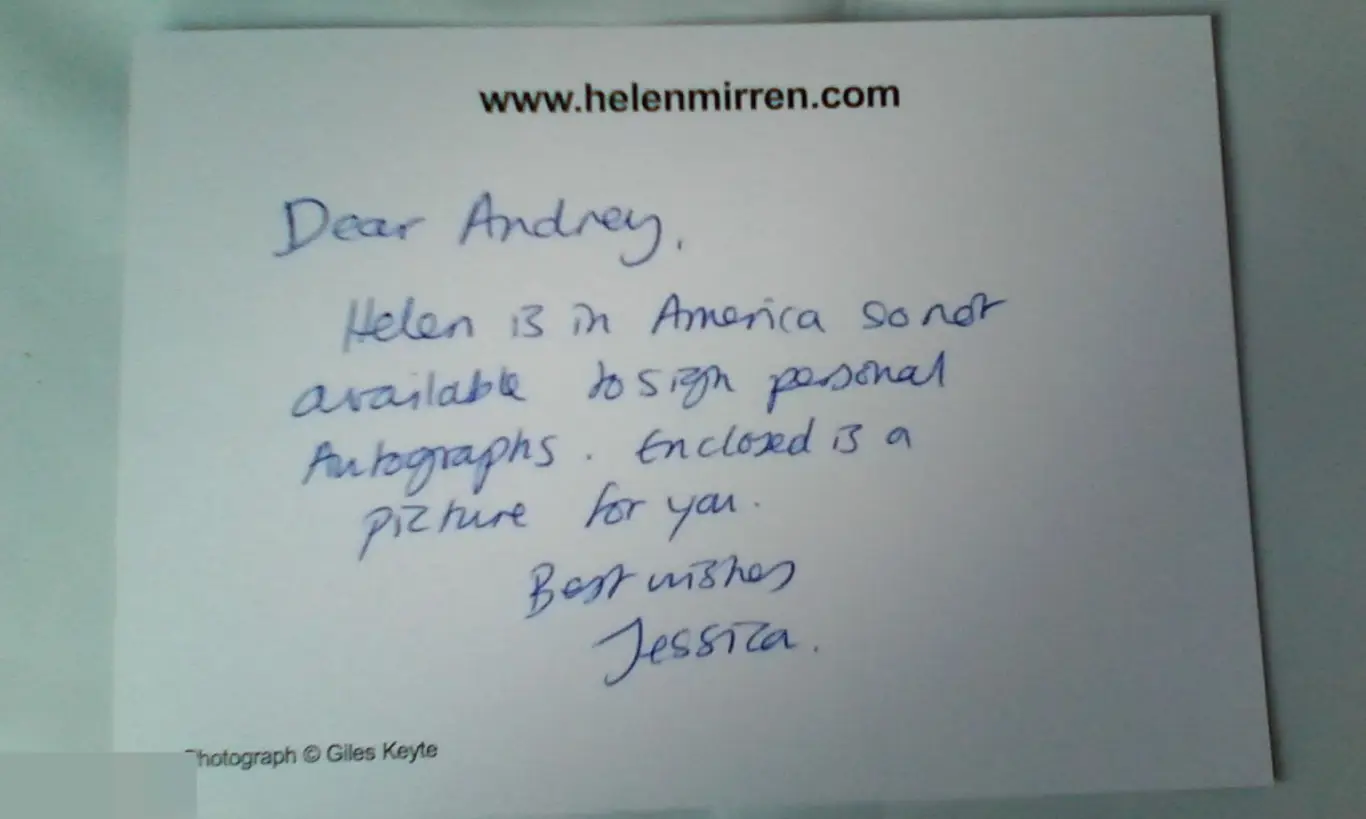 www.helenmirren.com
Dear Andrey,
Helen is in America so not
available to sign personal
Autographs. Enclosed is a
picture for you.
Best wishes
Jessica.
Photograph © Giles Keyte